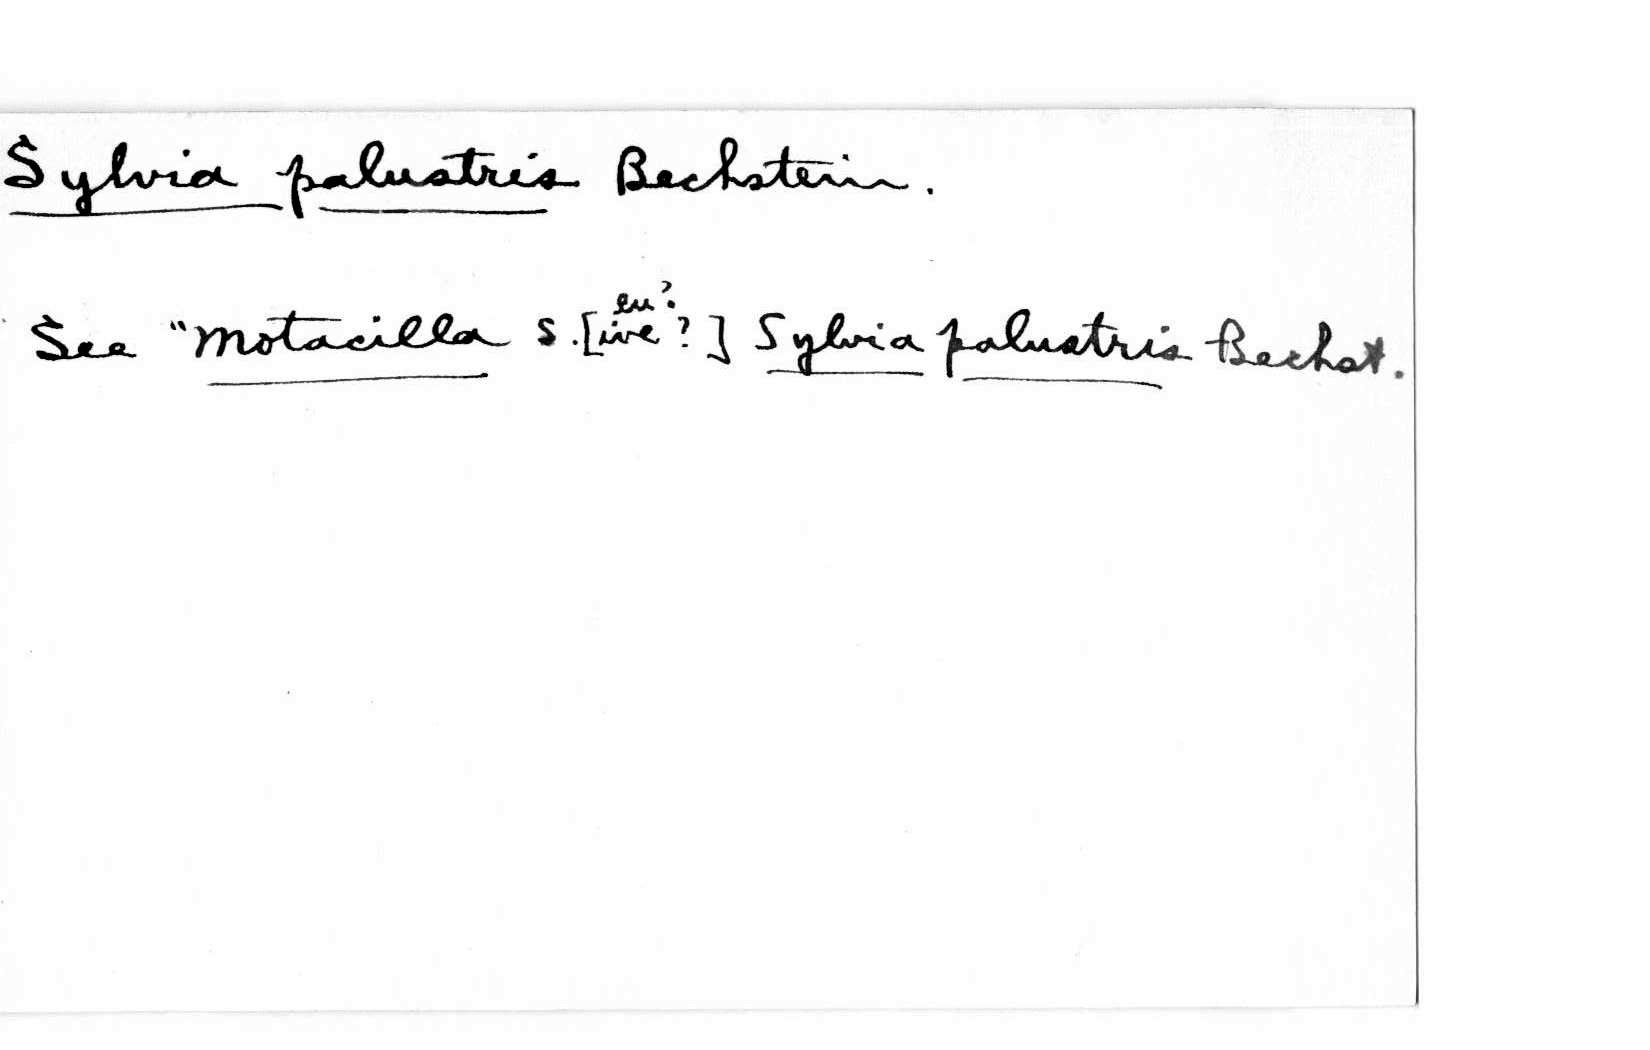 Sylvia palustris Bechstein.
eu?
See "Motacilla s.[ive?] Sylvia palustris Bechst.